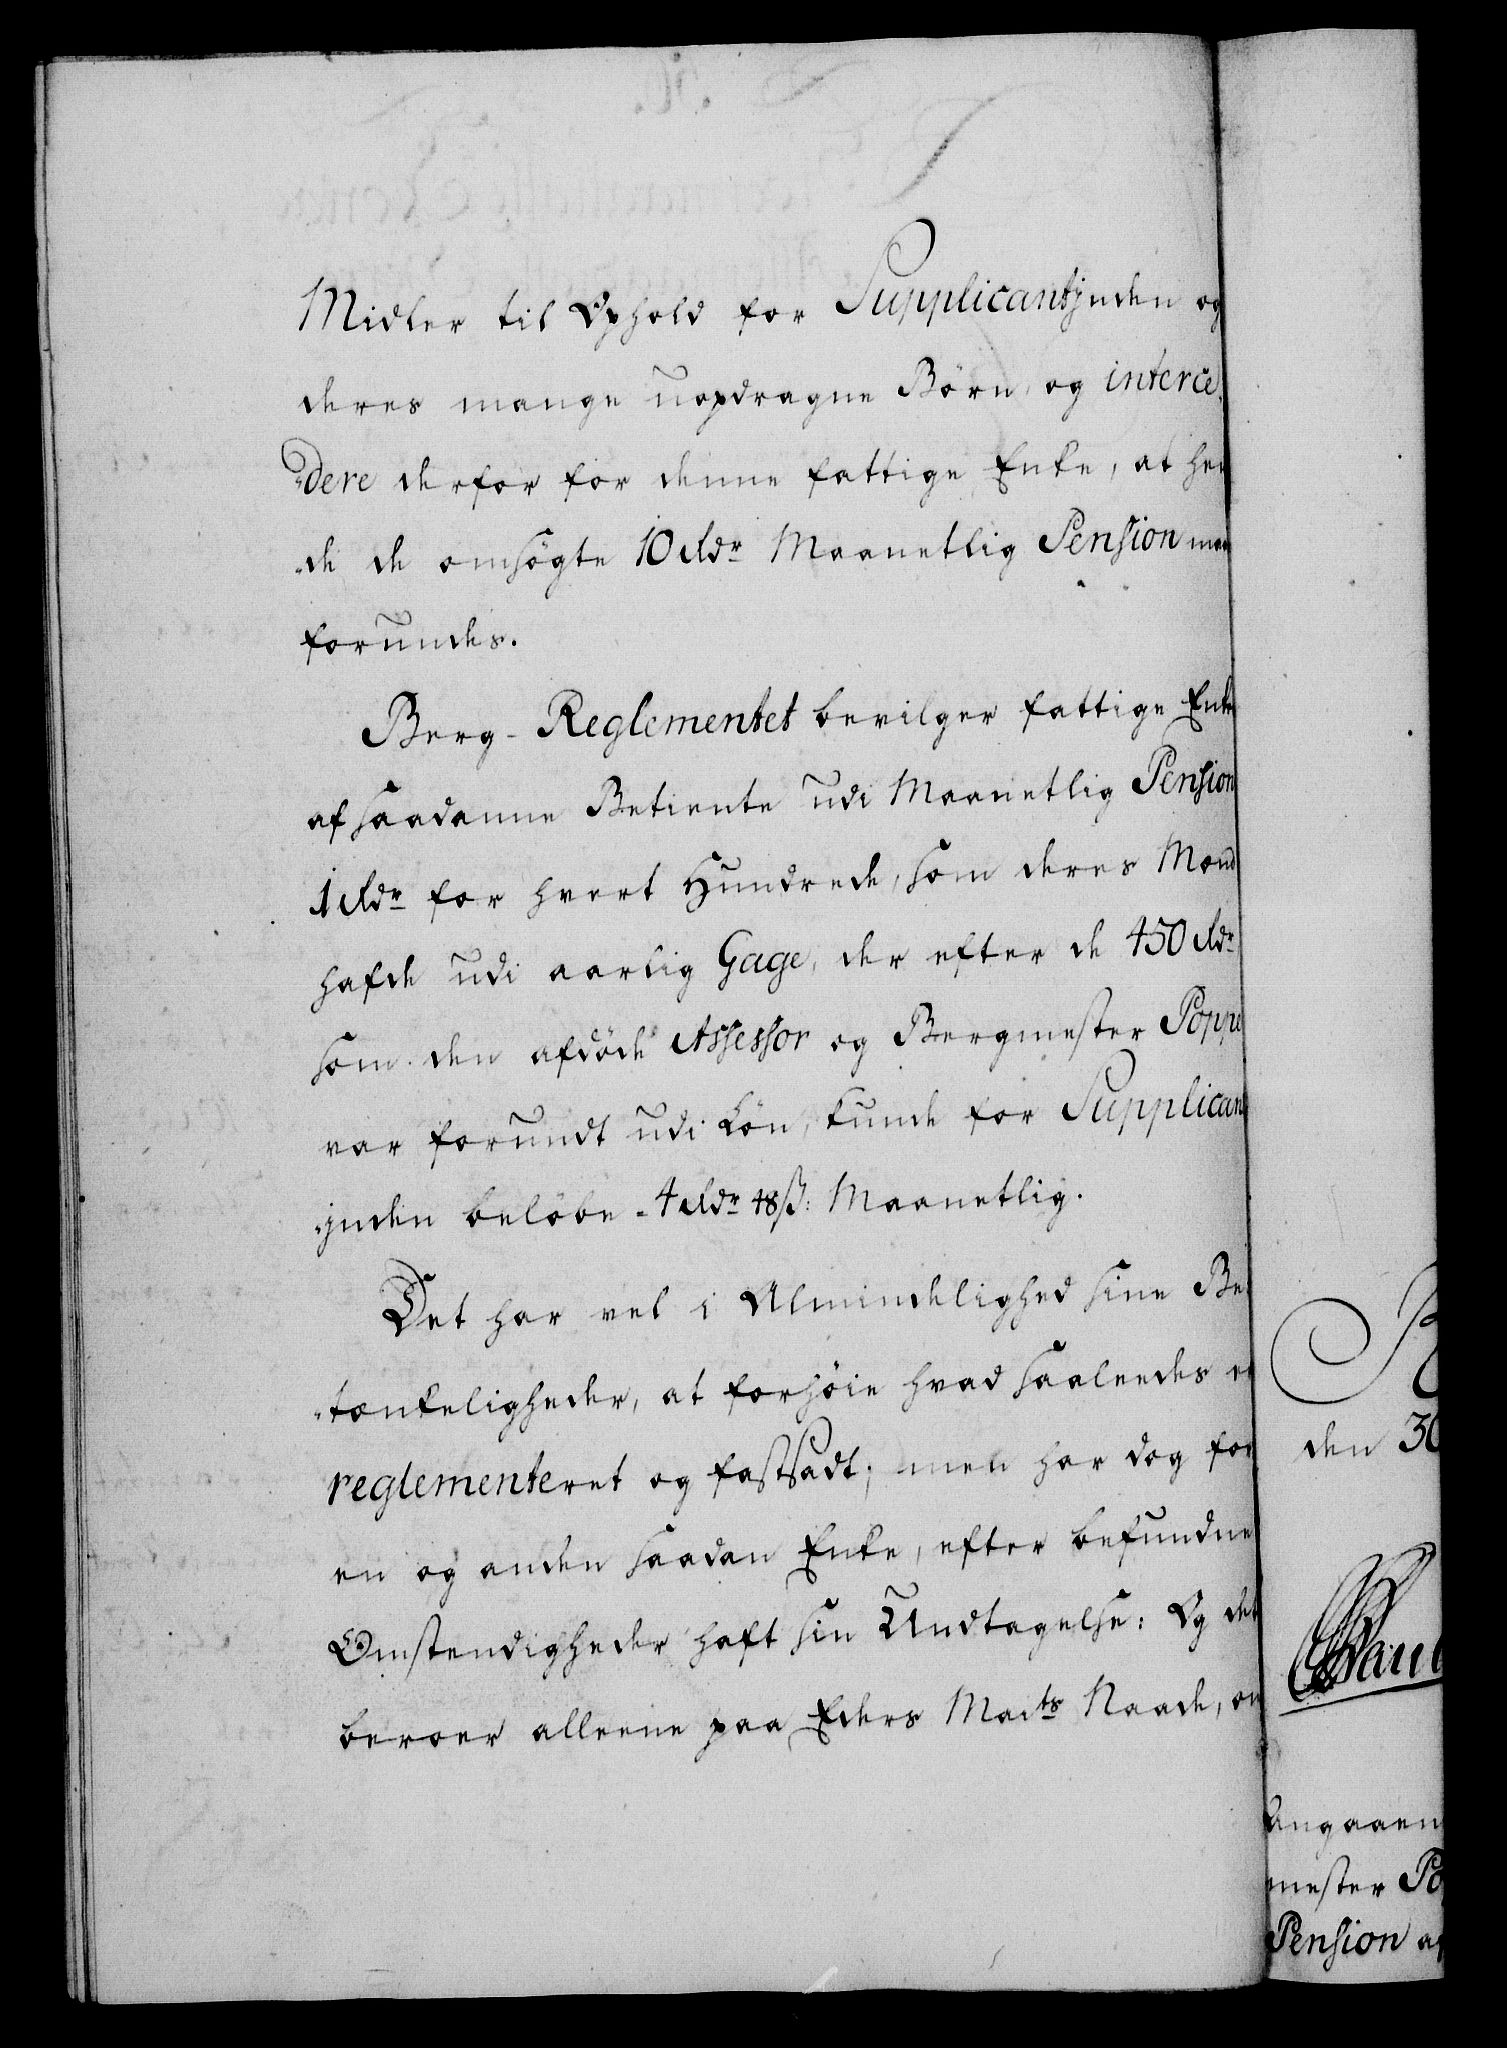 Midler til Ophold for Supplicantjnden og
deres mange uopdragne Börn, og interce-
dere derfor for denne fattige Enke, at hen
de de omsögte 10 Rdr Maanetlig Pension maa
forundes.
Berg-Reglementet bevilger fattige Enke
af saadanne Betiente udi Maanetlig Pension
1 Rdr for hvert Hundrede, som deres Mand
hafde udi aarlig Gage, der efter de 450 Rdr
som den afdöde Assessor og Bergmester Poppe
var forundt udi Lön, kunde for Supplicant
jnden belöbe - 4 Rdr 48 ß: Maanetlig.
Det har vel i Almindelighed sine Be-
tænkeligheder, at forhöie hvad saaleedes er
reglementeret og fastsadt; men har dog for
en og anden saadan Enke, efter befundne
Omstendigheder haft sin Undtagelse: Og det
beroer alleene paa Eders Maits Naade, om
den 30
Angaaen
mester Po
Pension af